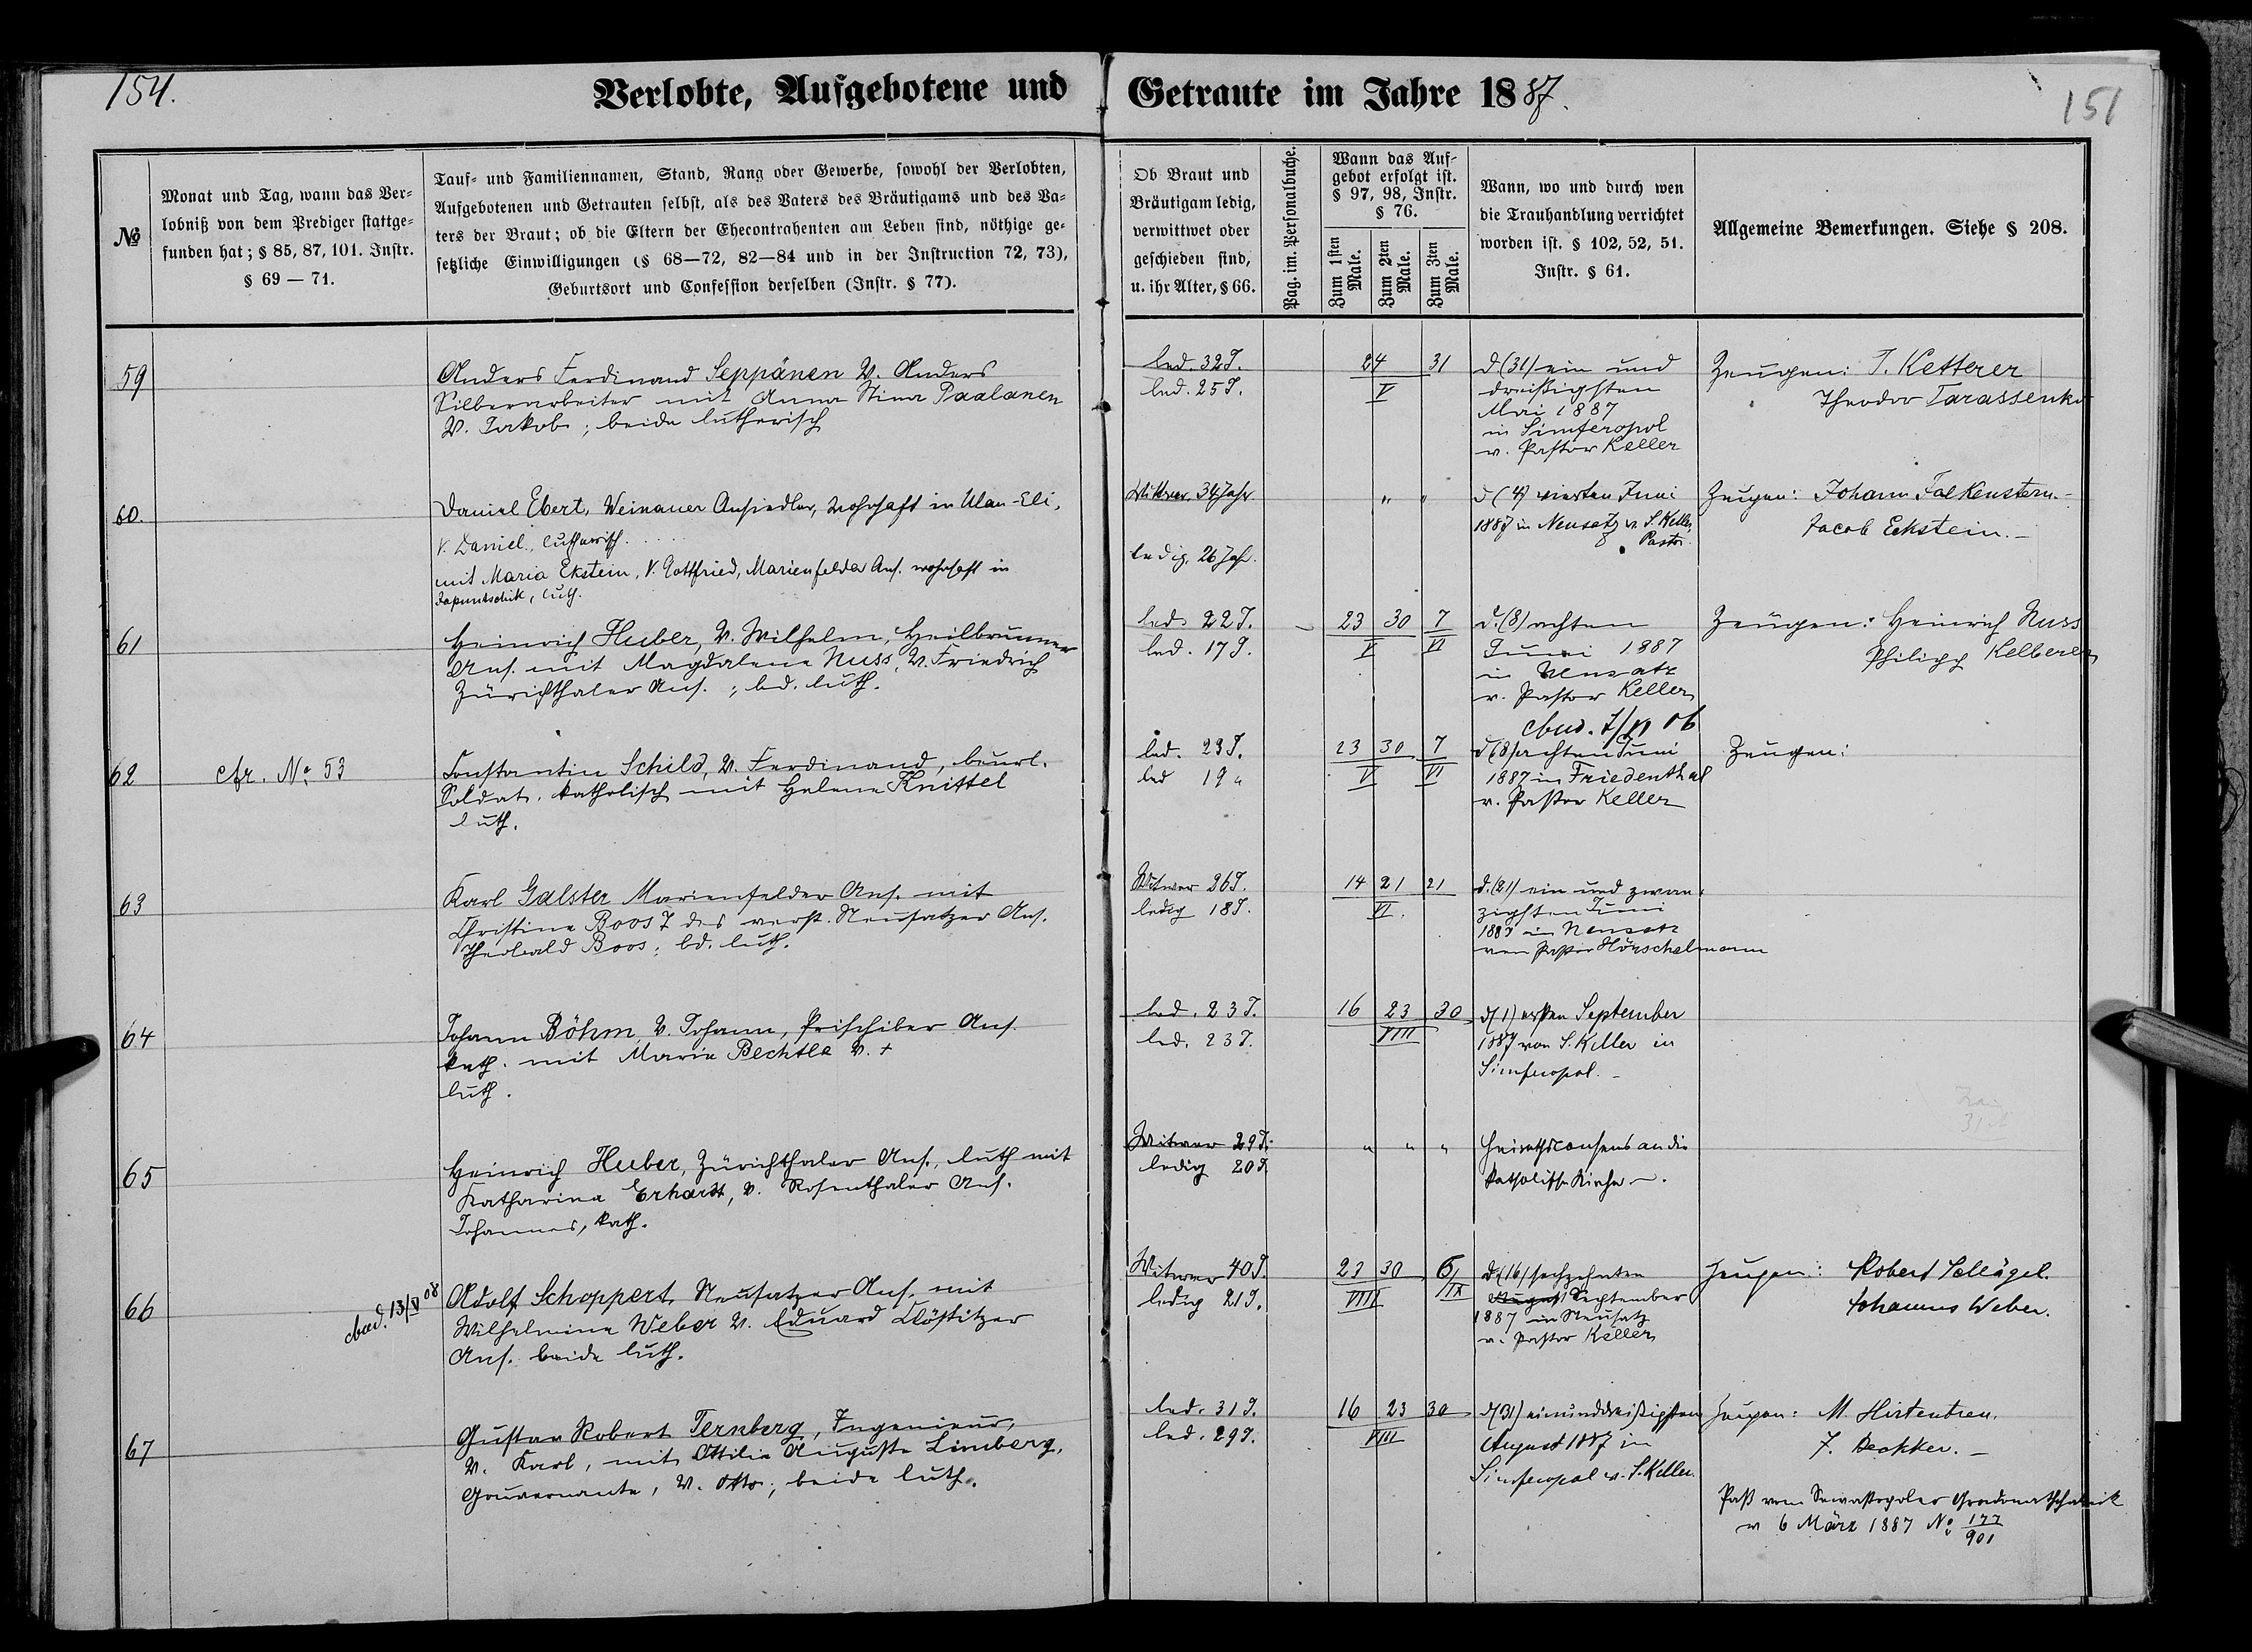 154.
Verlobte, Aufgebotene und Getraute im Jahre 1887.
151
№
Monat und Tag, wann das Ver-
lobniß von dem Prediger stattge-
funden hat; § 85, 87, 101. Instr.
§ 69 — 71.
Tauf- und Familiennamen, Stand, Rang oder Gewerbe, sowohl der Verlobten,
Aufgebotenen und Getrauten selbst, als des Vaters des Bräutigams und des Va-
ters der Braut; ob die Eltern der Ehecontrahenten am Leben sind, nöthige ge-
setzliche Einwilligungen (§ 68—72, 82—84 und in der Instruction 72, 73),
Geburtsort und Confession derselben (Instr. § 77).
Ob Braut und
Bräutigam ledig,
verwittwet oder
geschieden sind,
u. ihr Alter, § 66.
Pag. im. Personalbuche.
Wann das Auf-
gebot erfolgt ist.
§ 97, 98, Instr.
§ 76.
Zum 1sten
Male.
Zum 2ten
Male.
Zum 3ten
Male.
Wann, wo und durch wen
die Trauhandlung verrichtet
worden ist. § 102, 52, 51.
Instr. § 61.
Allgemeine Bemerkungen. Siehe § 208.
59
Anders Ferdinand Seppänen V. Anders
Silberarbeiter mit Anna Stina Paalanen
V. Jakob; beide lutherisch
led. 32 J.
led. 25 J.
24 31
V
d (31) ein und
dreißigsten
Mai 1887
in Simferopol
v. Pastor Keller
Zeugen: J. Ketterer
Theodor Tarassenko
60.
Daniel Ebert, Weinauer Ansiedler, wohnhaft in Ulan-Eli,
V. Daniel, lutherisch
mit Maria Ekstein, V. Gottfried, Marienfelder Ans. wohnhaft in
luth.
Wittwer. 34 Jahr
ledig, 26 Jahr.
" "
d (4) vierten Juni
1887 in Neusatz v. S. Keller
Pastor.
Zeugen: Johann Falkenstern.-
Jacob Eckstein.-
61
Heinrich Huber, V. Wilhelm, Heilbrunner
Ans. mit Magdalena Nuss, V. Friedrich
Zürichthaler Ans.; bd. luth.
led. 22 J.
led. 17 J.
23 30 7
V VI
d. (8) achten
Juni 1887
in Neusatz
v. Pastor Keller
Zeugen: Heinrich Nuss
Philipp Kelberer
62
cfr. No. 53
Constantin Schild, V. Ferdinand, beurl.
Soldat, katholisch mit Helena Knittel
luth.
led. 23 J.
led 19 "
23 30 7
V VI
d (8) achten Juni
1887 in Friedenthal
v. Pastor Keller
Zeugen:
63
Karl Galster Marienfelder Ans. mit
Christina Boos T des verst. Neusatzer Ans.
Theobald Boos; bd. luth.
Witwer 26 J.
ledig 18 J.
14 21 21
VI.
d. (21) ein und zwan-
zigsten Juni
1887 in Neusatz
von Pastor Hörschelmann
64
Johann Böhm, V. Johann, Prischiber Ans.
kath. mit Maria Bechtle V. +
luth.
led. 23 J.
led. 23 J.
16 23 30
VIII
d (1) ersten September
1887 von S. Keller in
Simferopol.-
65
Heinrich Huber, Zürichthaler Ans., luth mit
Katharina Erhardt, V. Rosenthaler Ans.
Johannes, kath.
Witwer 29 J.
ledig 20 J.
" " "
Heirathsconsens an die
katholische Kirche.
66
Adolf Schoppert, Neusatzer Ans. mit
Wilhelmina Weber V. Eduard Klöstitzer
Ans. beide luth.
Witwer 40 J.
ledig 21 J.
23 30 6
VIII IX
d. (16) sechzehnten
August September
1887 in Neusatz
v. Pastor Keller
Zeugen: Robert Schlägel.
Johannes Weber.
67
Gustav Robert Ternberg, Ingenieur,
V. Karl, mit Ottilie Auguste Limberg,
Gouvernante, V. Otto; beide luth.
led. 31 J.
led. 29 J.
16 23 30
VIII
d (31) einunddreißigsten
August 1887 in
Simferopol v. S. Keller.
Zeugen: M. Hirtentreu.
7. Beckker.-
Paß vom Sewastopoler
v 6 März 1887 No. 177
901